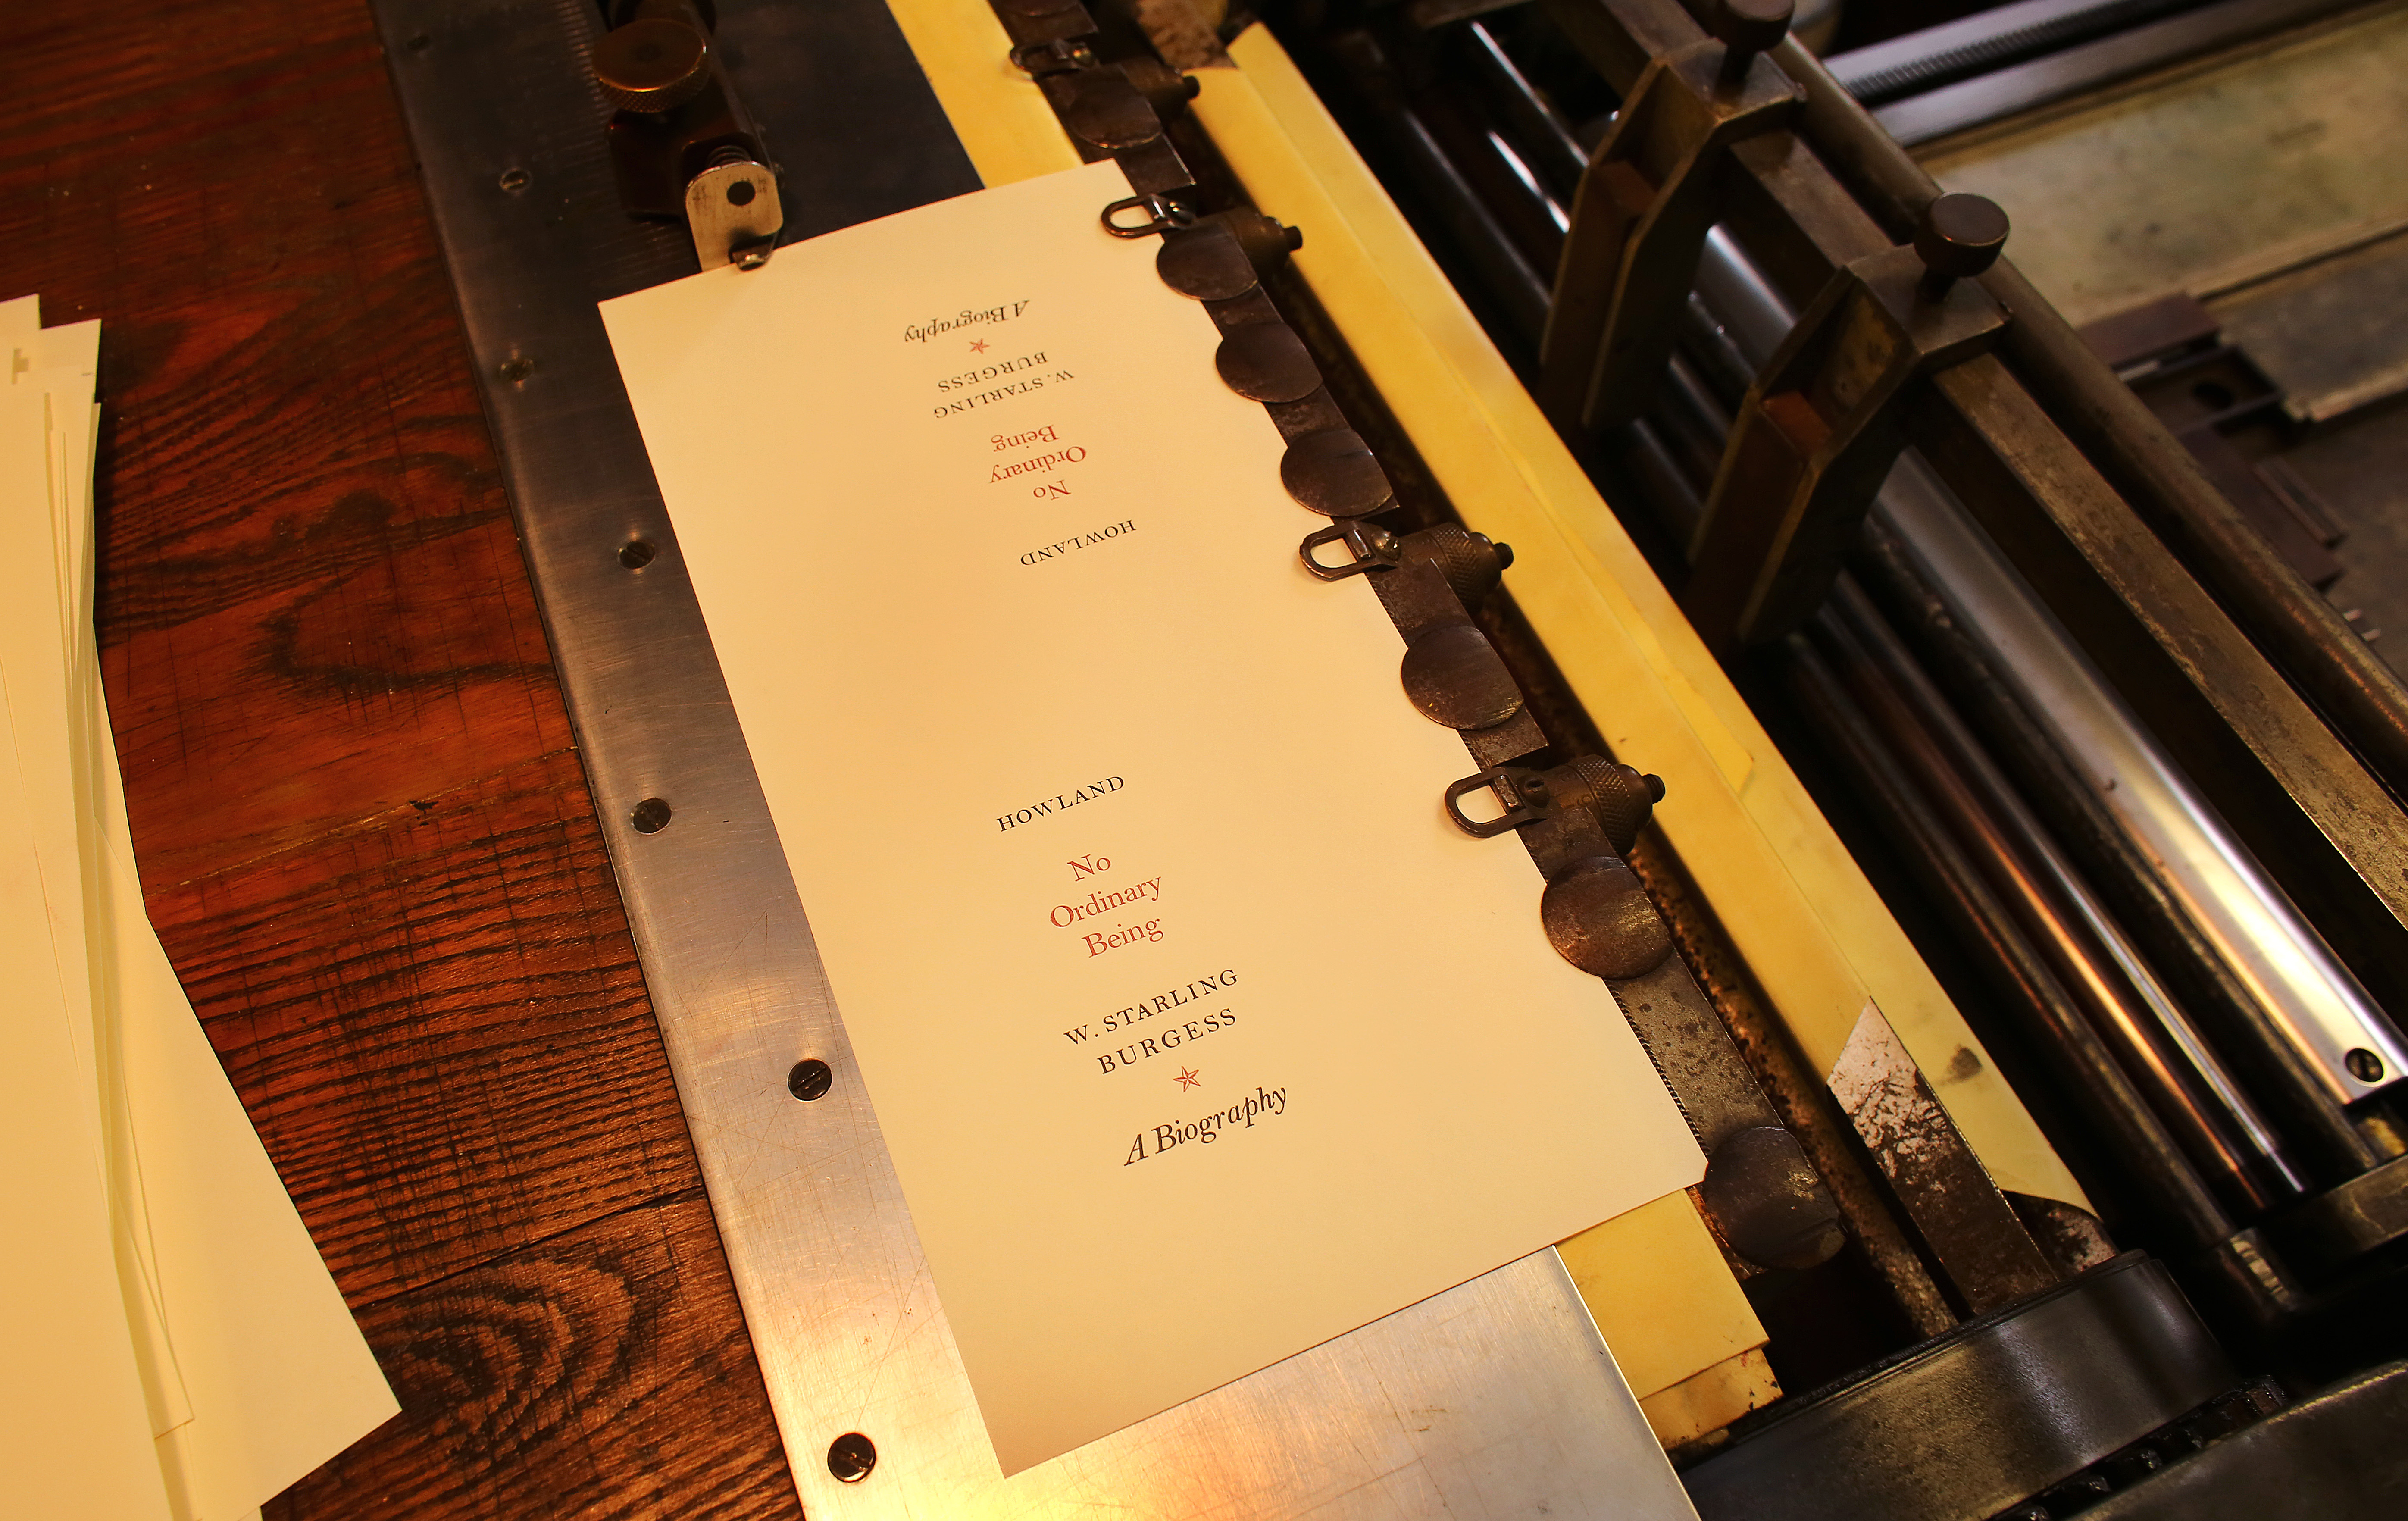 A Biography
W. STARLING
BURGESS
No
Ordinary
Being
HOWLAND
HOWLAND
No
Ordinary
Being
W. STARLING
BURGESS
A Biography